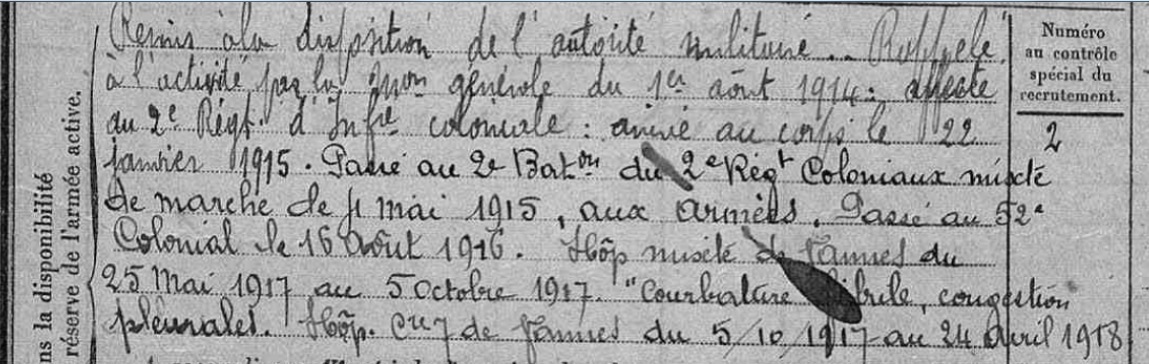 Remis à la disposition de l'autorité militaire. Rappelé
à l'activité par la Mon générale du 1er août 1914 : affecté
au 2e Régt d'Infie coloniale : arrivé au corps le 22
janvier 1915. Passé au 2e Baton du 2e Régt Coloniaux mixte
de marche le 4 mai 1915, aux armées. Passé au 52e
Colonial le 16 Août 1916. Hôp mixte de Vannes du
25 Mai 1917 au 5 Octobre 1917. "Courbature fébrile, congestion
pleurales. Hôp. Cre 7 de Vannes du 5/10/1917 au 24 avril 1918
Numéro
au contrôle
spécial du
recrutement.
2
ns la disponibilité
réserve de l'armée active.